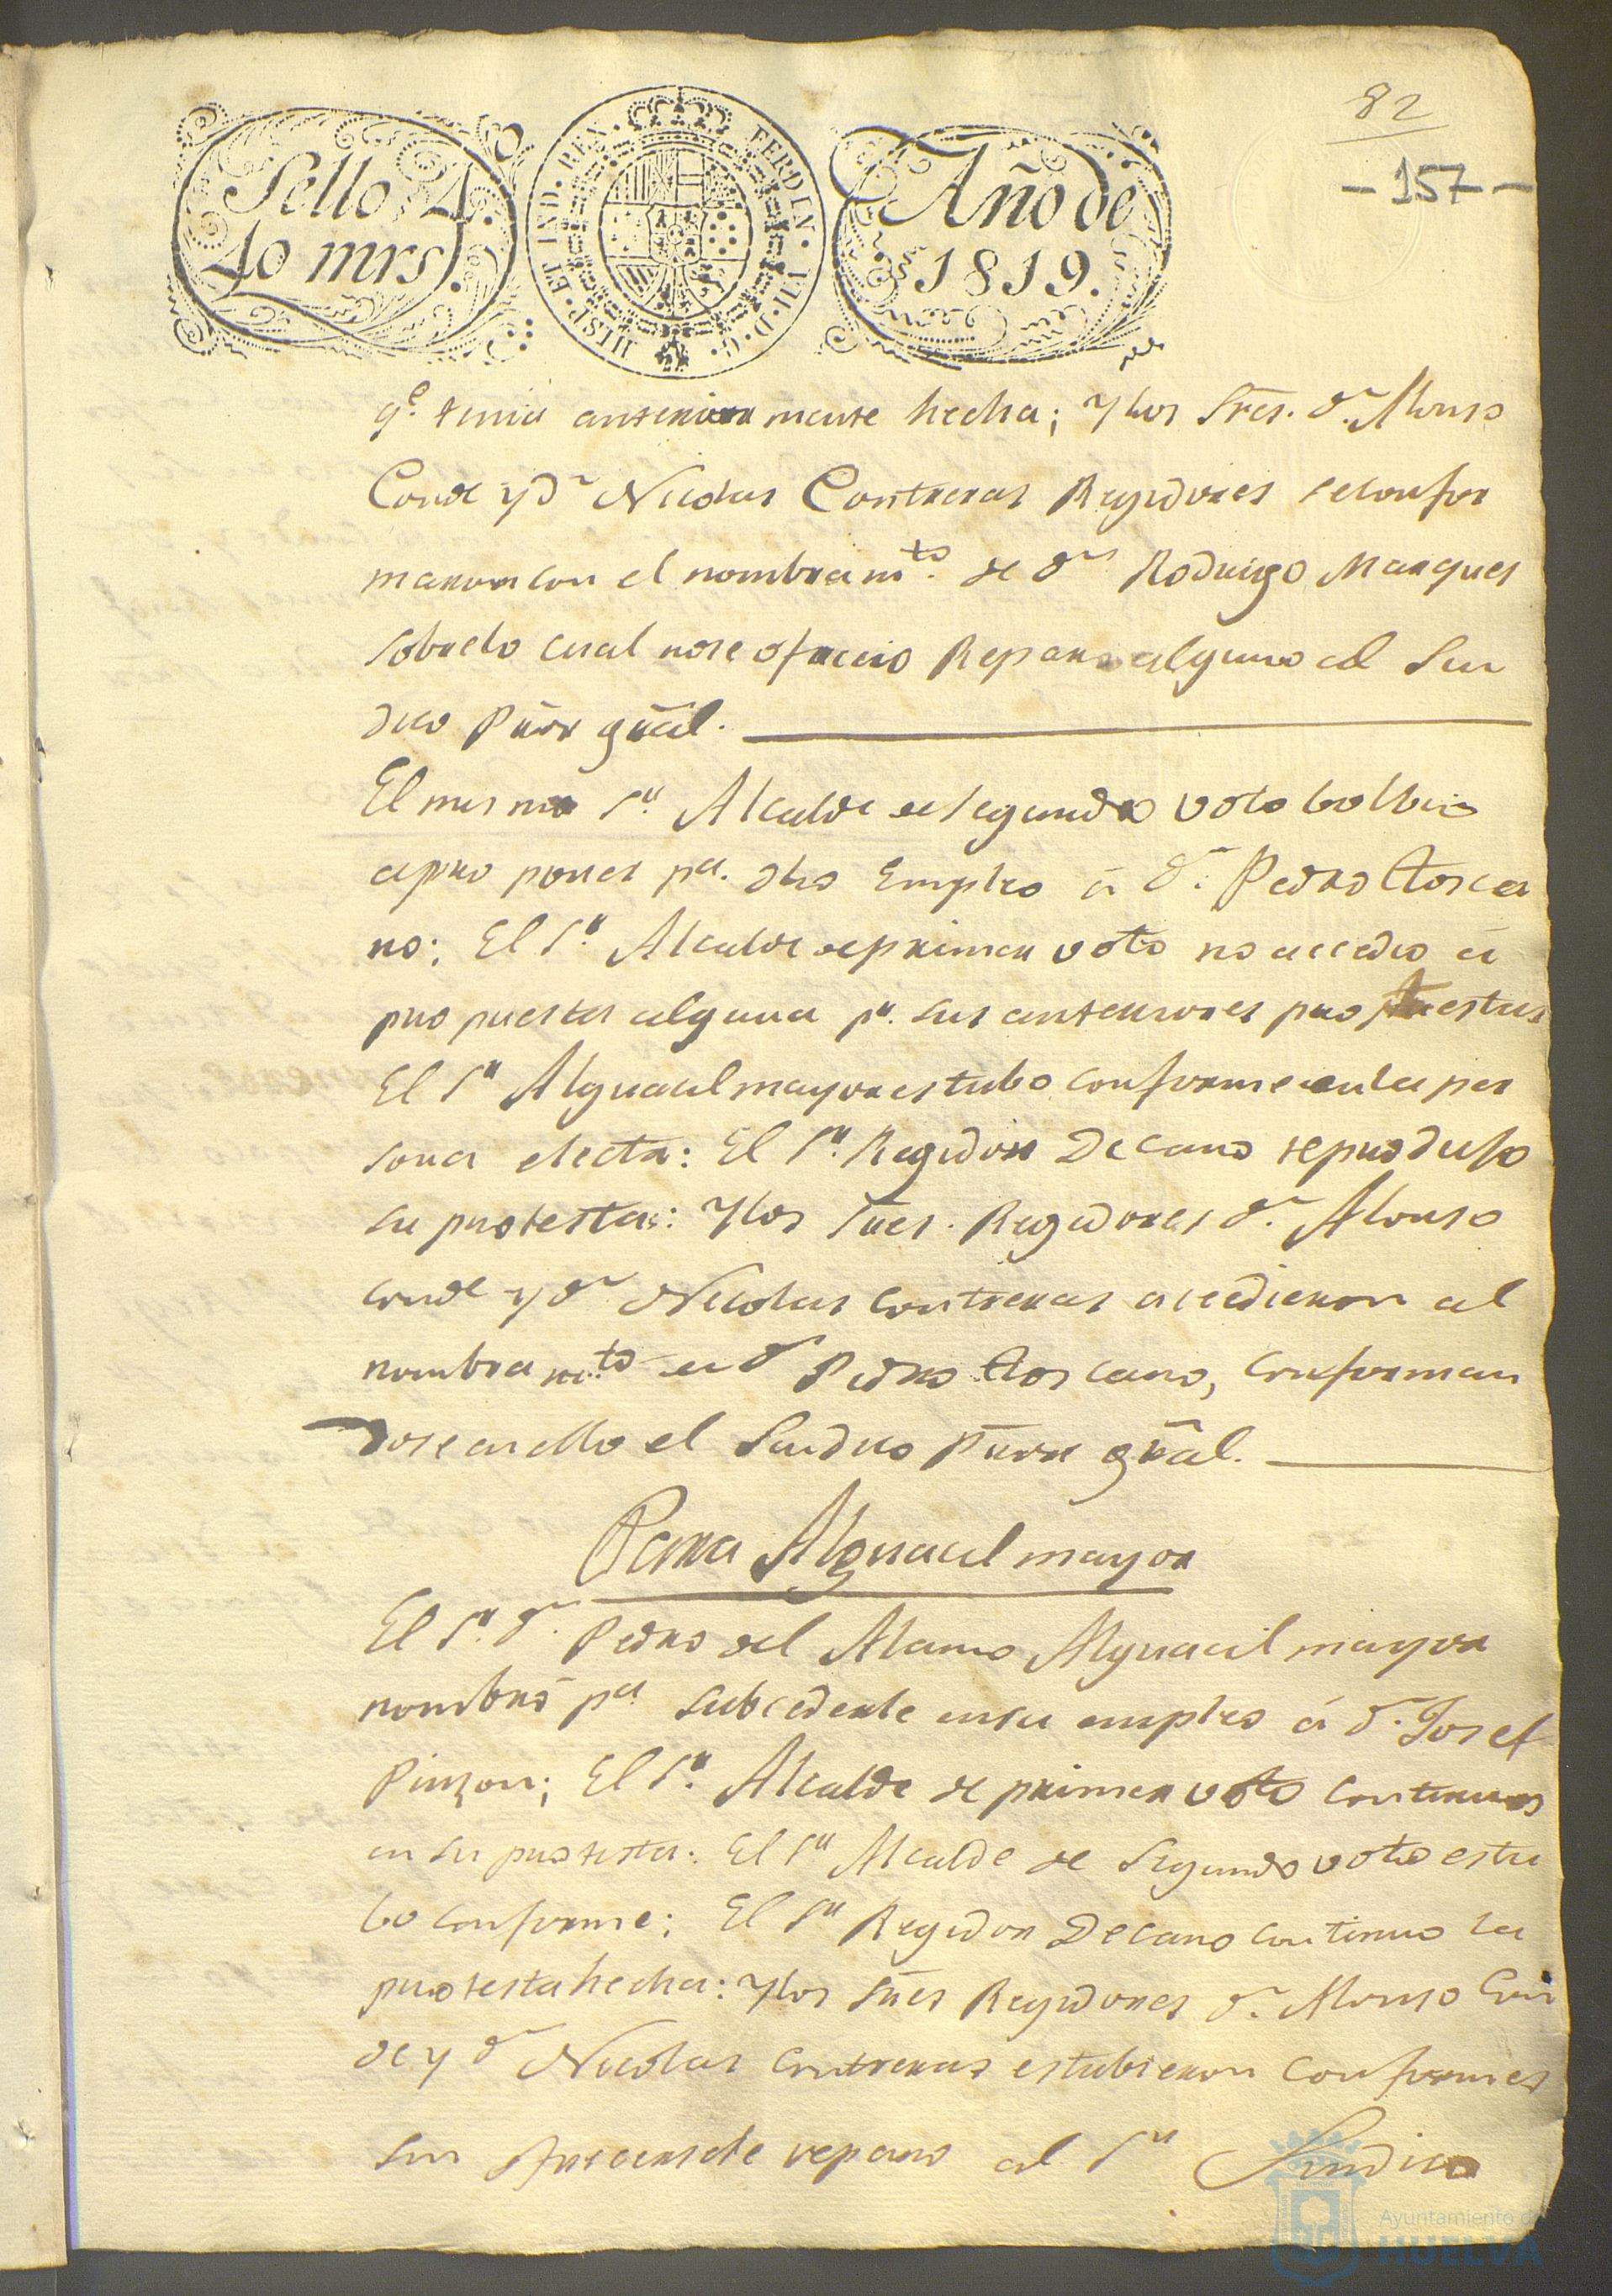 82
- 157 -
Sello 4.º
40 mrs.
HISP. ET IND. REX. FERDIN. VII. D. G.
Año de
1819.
q.e tenia anteriormente hecha; y los Sres. dn. Alonso
Conde y dn Nicolas Contreras Regidores se confor
maron con el nombram.to de dn Rodrigo Marques
sobre lo cual no se ofrecio Reparo alguno al Sin
dico Prõr grãl.
El mismo Sr. Alcalde de segundo voto bolbio
a proponer pa. dho Empleo á dn. Pedro Tosca
no; El Sr. Alcalde de primer voto no accedio á
propuesta alguna pr. sus anteriores protestas
El Sr Alguacil mayor estubo conforme en la per
sona electa: El Sr. Regidor Decano reprodujo
su protesta: Y los Sres. Regidores dn. Alonso
Conde y dn Nicolas Contreras accedieron al
nombram.to en dn Pedro Toscano, conforman
dose en ello el Sindico Prõr grãl.
Para Alguacil mayor
El Sr. dn. Pedro del Alamo Alguacil mayor
nombró pa subcederle en su empleo á dn. Josef
Pinzon; El Sr. Alcalde de primer voto continuó
en su protesta: El Sr Alcalde de Segundo voto estu
bo conforme; El Sr Regidor Decano continuo la
protesta hecha: Y los Sres Regidores dn. Alonso Con
de y dn Nicolas Contreras estubieron conformes
sin ofrecersele reparo al Sr Sindico
Ayuntamiento de
HUELVA